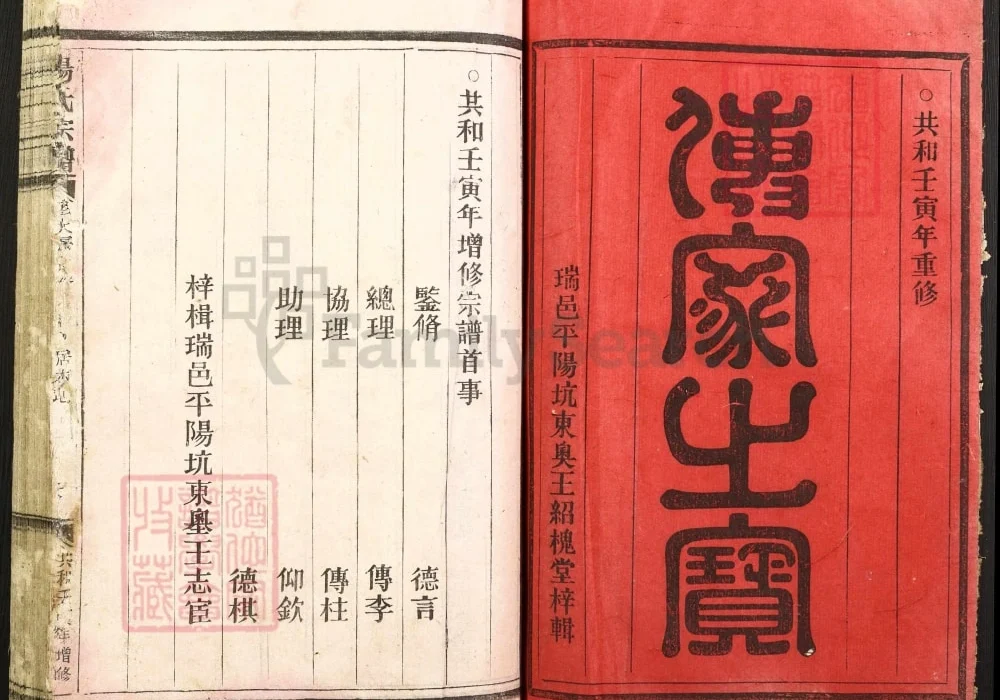 共和壬寅年重修
傳家之寶
瑞邑平陽坑東奧王紹槐堂梓輯
共和壬寅年增修宗譜首事
鑒脩 德言
總理 傳李
協理 傳柱
助理 仰欽
德棋
梓楫瑞邑平陽坑東墺王志宦
楊氏宗譜